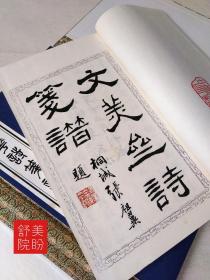 文美亝詩
箋譜
桐城張祖翼
題
美盼
舒院